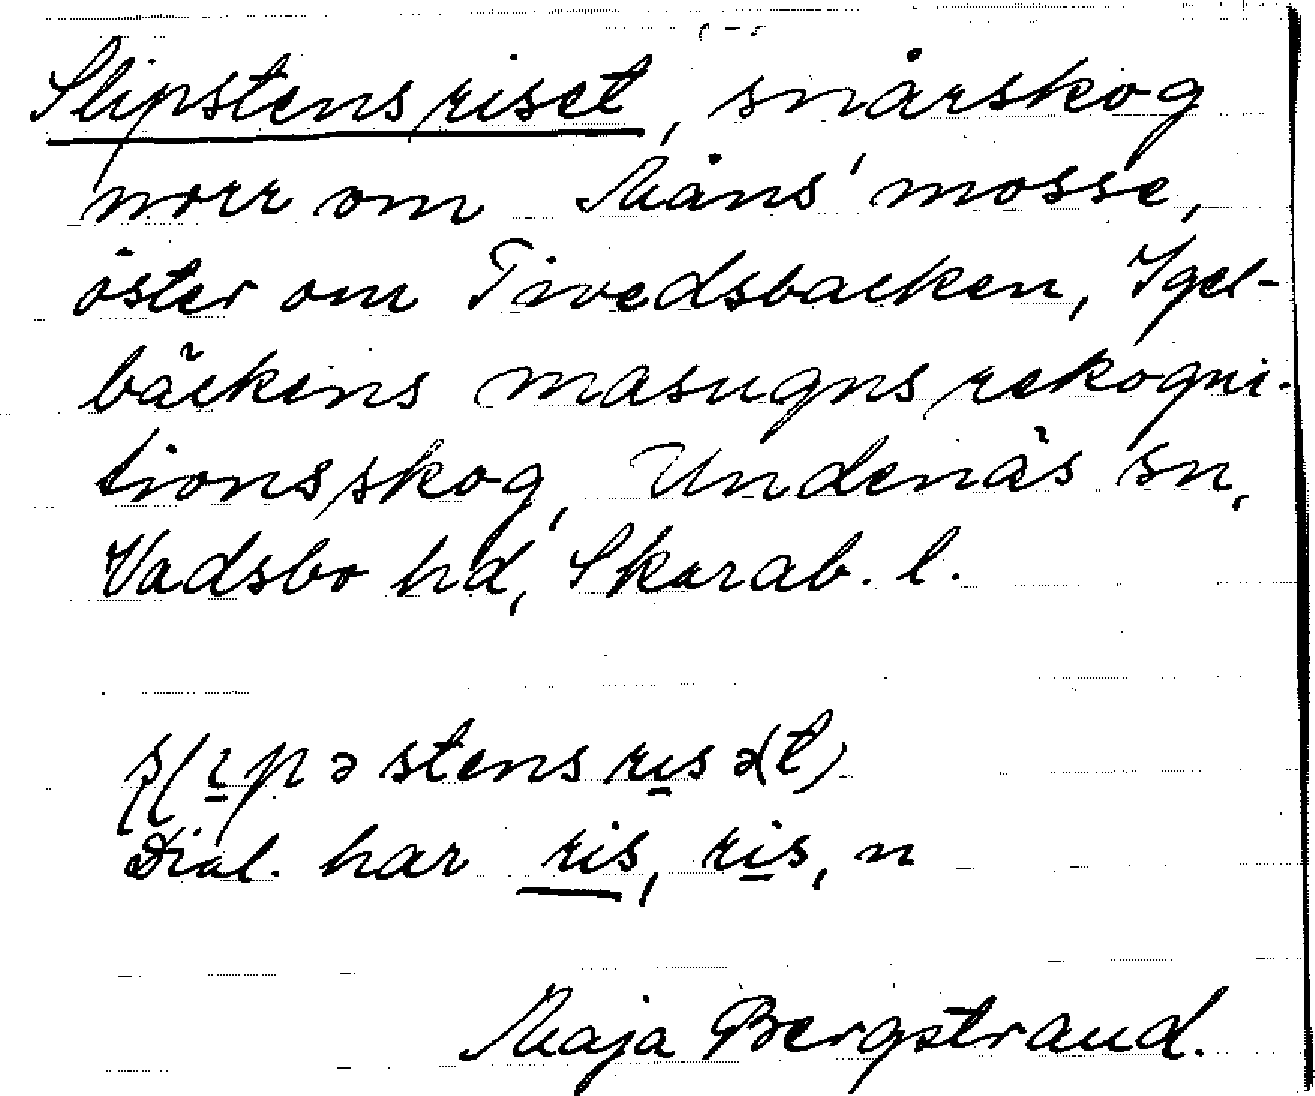 Slipstensriset, snårskog
norr om Måns' mosse,
öster om Tivedsbacken, Igel-
bäckens masugnsrekogni-
tionsskog, Undenäs sn,
Vadsbo hd, Skarab. l.
stensrisə(t)
Dial. har ris, ris, n
Maja Bergstrand.